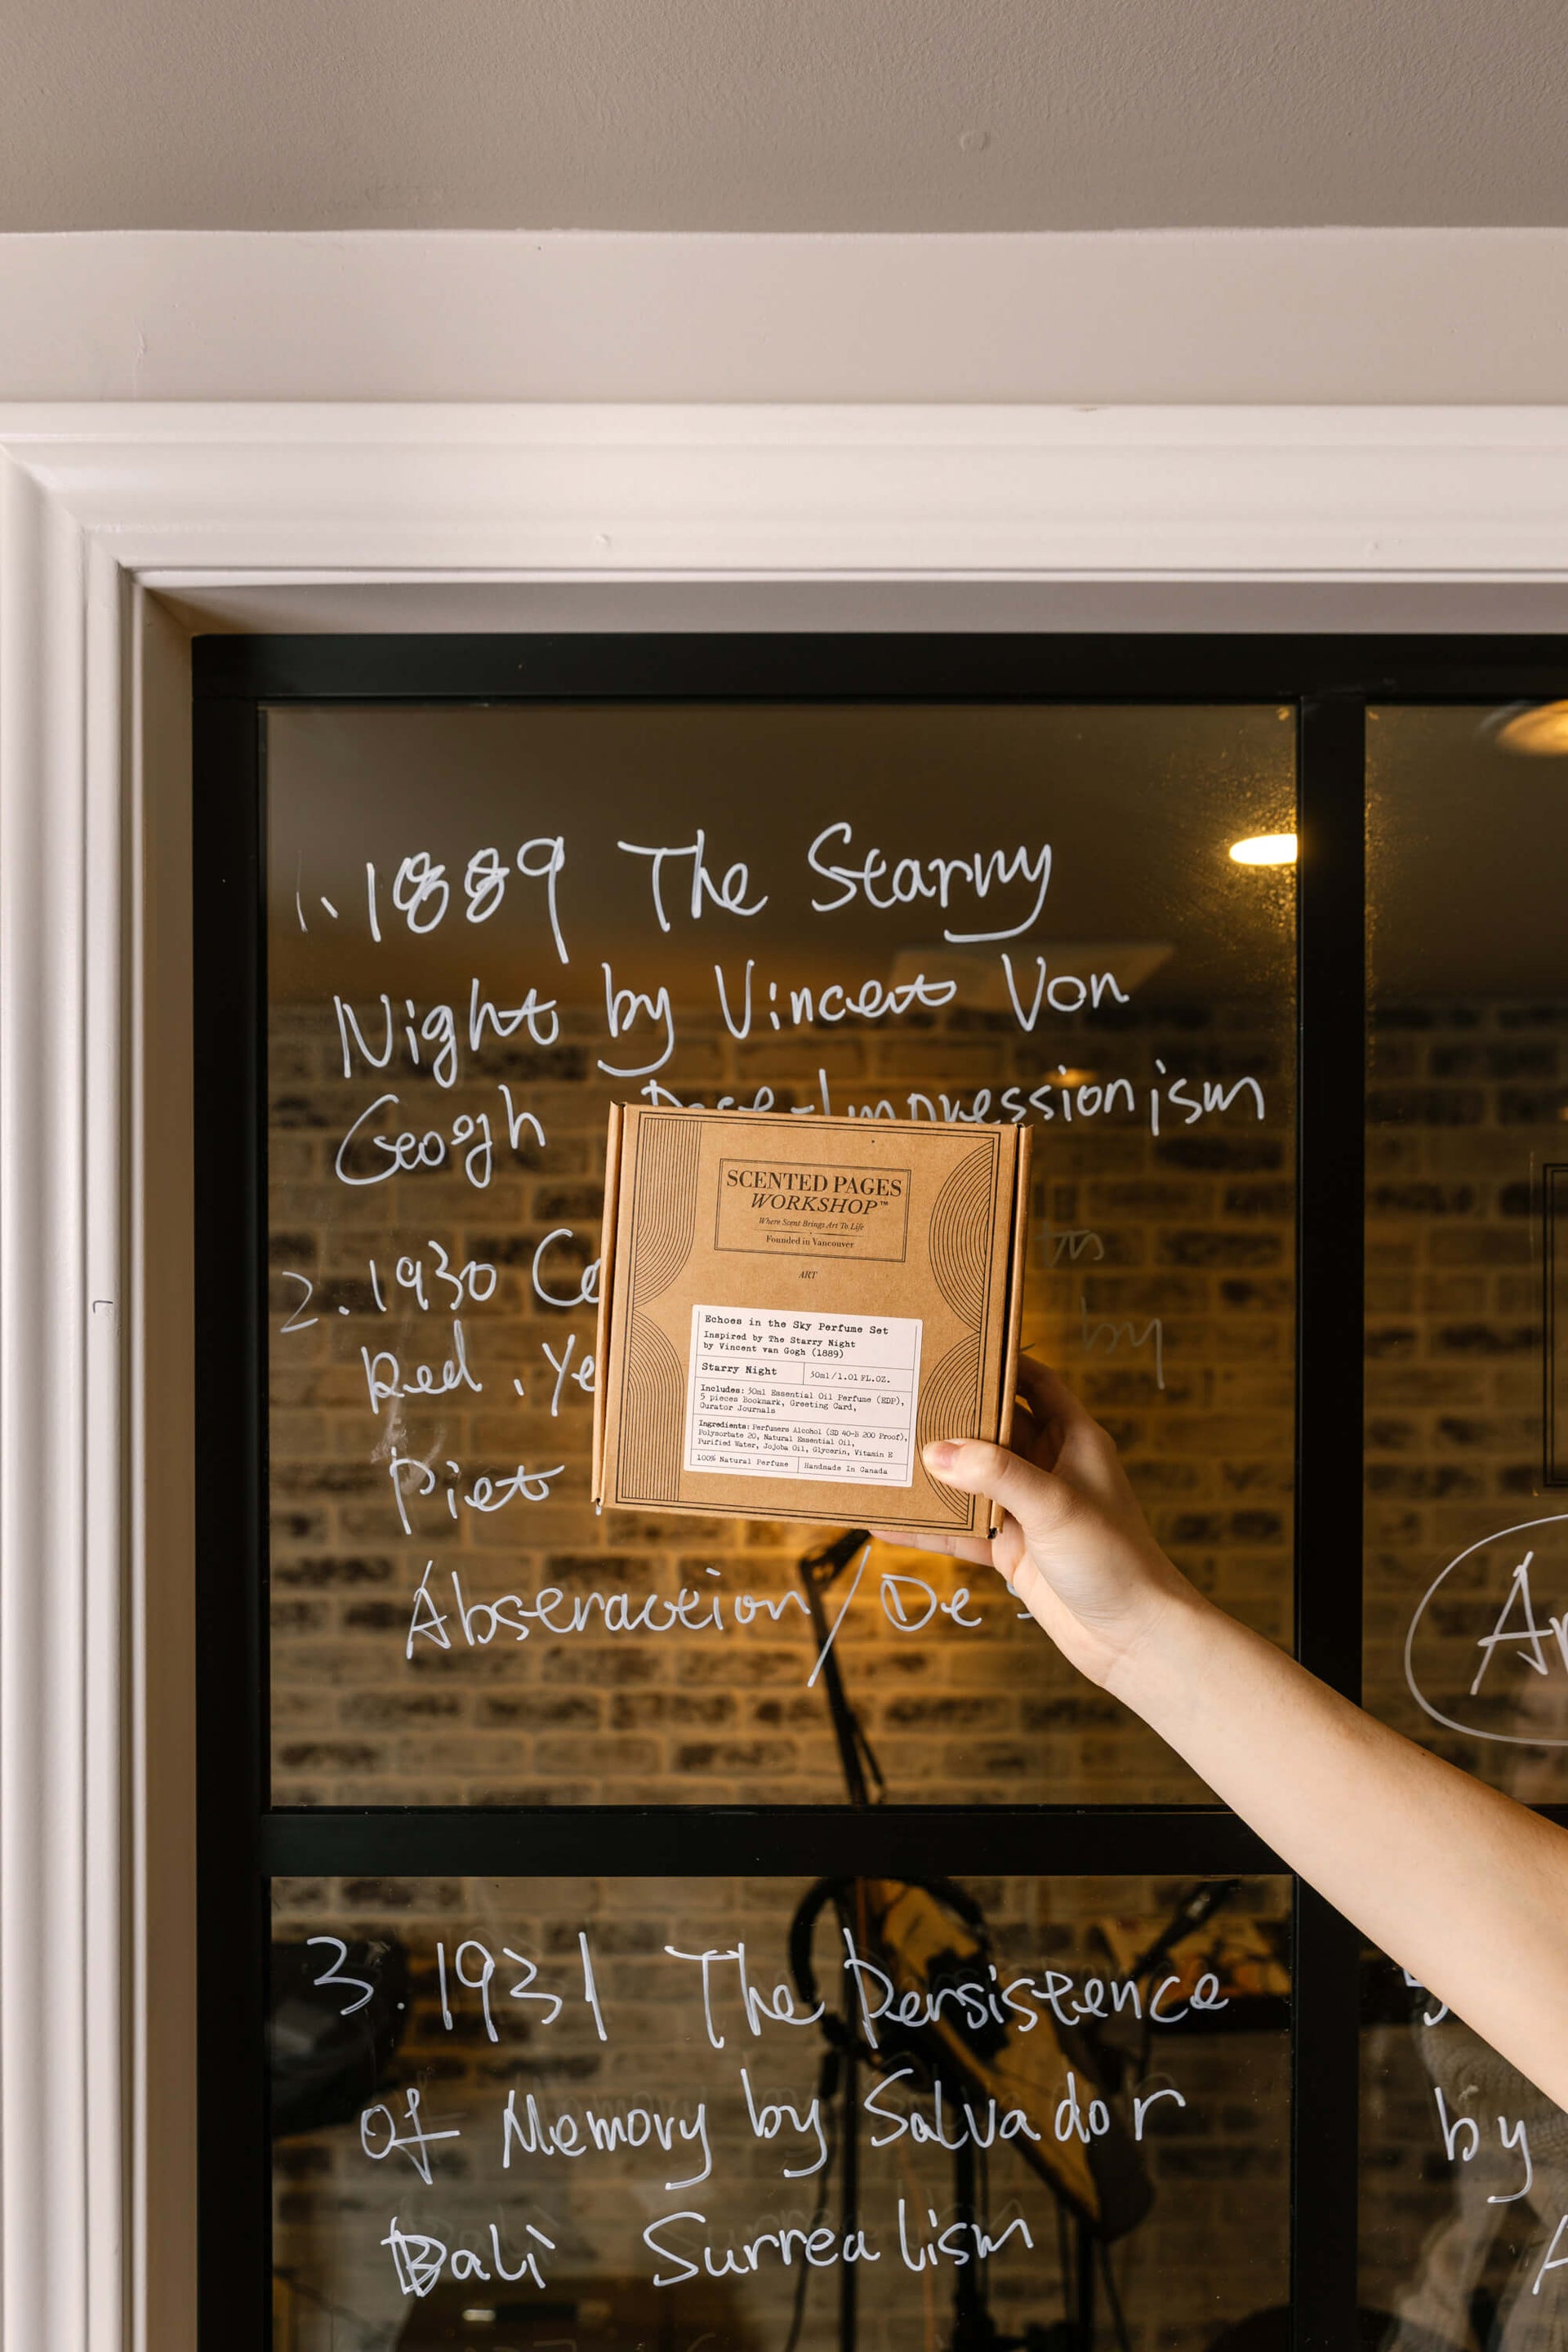 1. 1889 The Starry
Night by Vincent Von
Geogh Post-Impressionism
2. 1930
Red, Ye
by
Piet
Abstraction / De S
3. 1931 The Persistence
of Memory by Salvador
Dali Surrealism
SCENTED PAGES
WORKSHOP™
Where Scent Brings Art To Life
Founded in Vancouver
ART
Echoes in the Sky Perfume Set
Inspired by The Starry Night
by Vincent van Gogh (1889)
Starry Night 30ml/1.01 FL.OZ.
Includes: 30ml Essential Oil Perfume (EDP),
5 pieces Bookmark, Greeting Card,
Curator Journals
Ingredients: Perfumers Alcohol (SD 40-B 200 Proof),
Polysorbate 20, Natural Essential Oil,
Purified Water, Jojoba Oil, Glycerin, Vitamin E
100% Natural Perfume Handmade In Canada
by